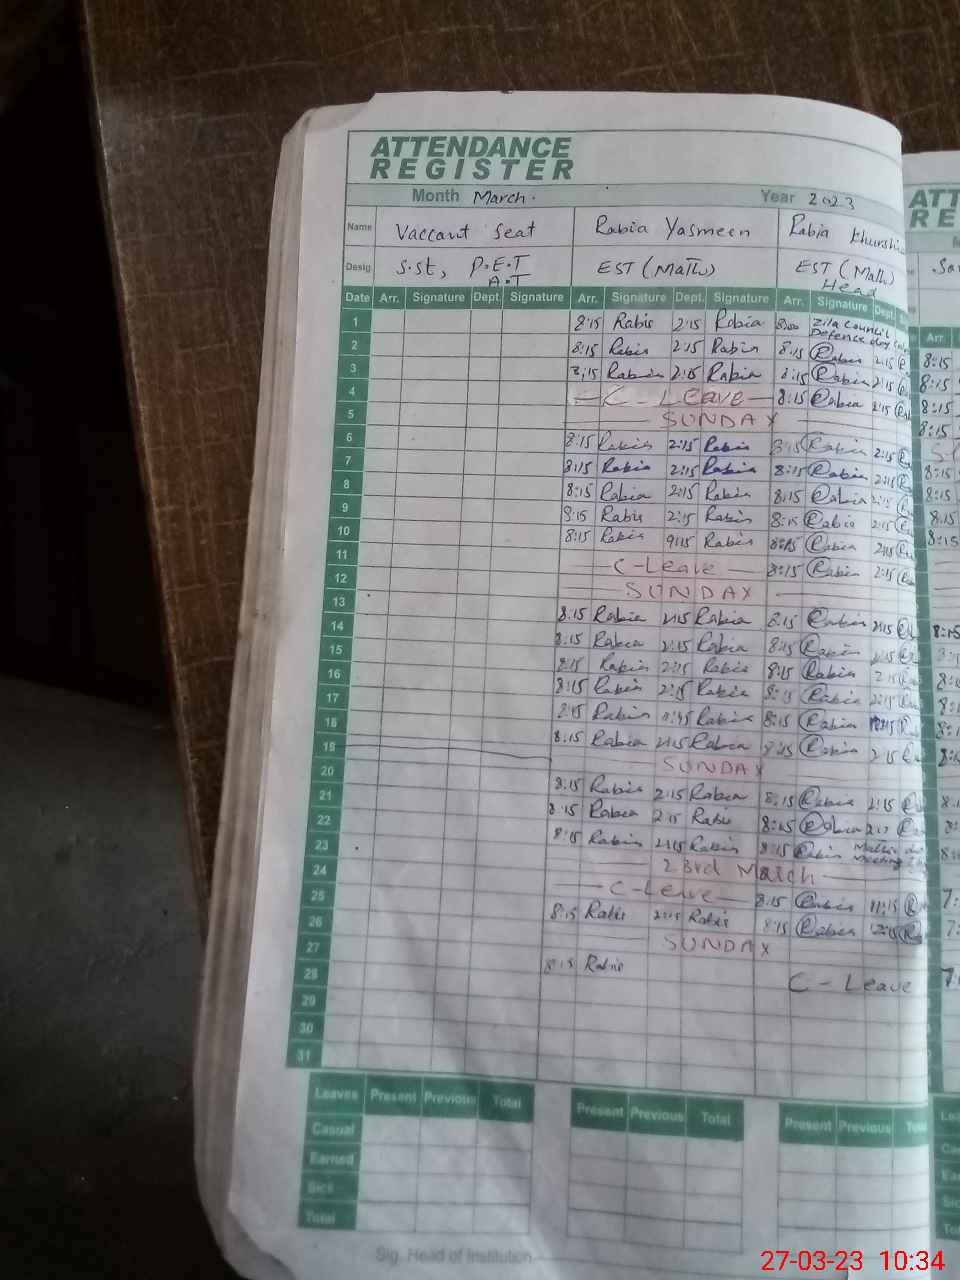 ATTENDANCE
REGISTER
Month March. Year 2023
Name Vaccant Seat Rabia Yasmeen Rabia
Desig. S.st, P.E.T EST (Math) EST (Math)
A.T Head
Date Arr. Signature Dept. Signature Arr. Signature Dept. Signature Arr. Signature Dept.
1 8:15 Rabia 2:15 Rabia 8:00 Zila Council
Defence day
2 8:15 Rabia 2:15 Rabia 8:15 Rabia 2:15
3 8:15 Rabia 2:15 Rabia 8:15 Rabia 2:15
4 C - Leave 8:15 Rabia 2:15
5 SUNDAY
6 8:15 Rabia 2:15 Rabia 8:15 Rabia 2:15
7 8:15 Rabia 2:15 Rabia 8:15 Rabia 2:15
8 8:15 Rabia 2:15 Rabia 8:15 Rabia 2:15
9 8:15 Rabia 2:15 Rabia 8:15 Rabia 2:15
10 8:15 Rabia Rabia 8:15 Rabia 2:15
11 C - Leave 8:15 Rabia 2:15
12 SUNDAY
13 8:15 Rabia 2:15 Rabia 8:15 Rabia 2:15
14 8:15 Rabia 2:15 Rabia 8:15 Rabia 2:15
15 8:15 Rabia 2:15 Rabia 8:15 Rabia 2:15
16 8:15 Rabia 2:15 Rabia 8:15 Rabia 2:15
17 8:15 Rabia Rabia 8:15 Rabia
18 8:15 Rabia 2:15 Rabia 8:15 Rabia 2:15
19 SUNDAY
20 8:15 Rabia 2:15 Rabia 8:15 Rabia 2:15
21 8:15 Rabia 2:15 Rabia 8:15 Rabia
22 8:15 Rabia 2:15 Rabia 8:15 Rabia
Meeting
23 23rd March
24 C - Leave 8:15 Rabia 11:15
25 8:15 Rabia 2:15 Rabia 8:15 Rabia
26 SUNDAY
27 8:15 Rabia C - Leave
28
29
30
31
Leaves Present Previous Total Present Previous Total Present Previous
Casual
Earned
Sick
Total
Sig. Head of Institution
27-03-23 10:34